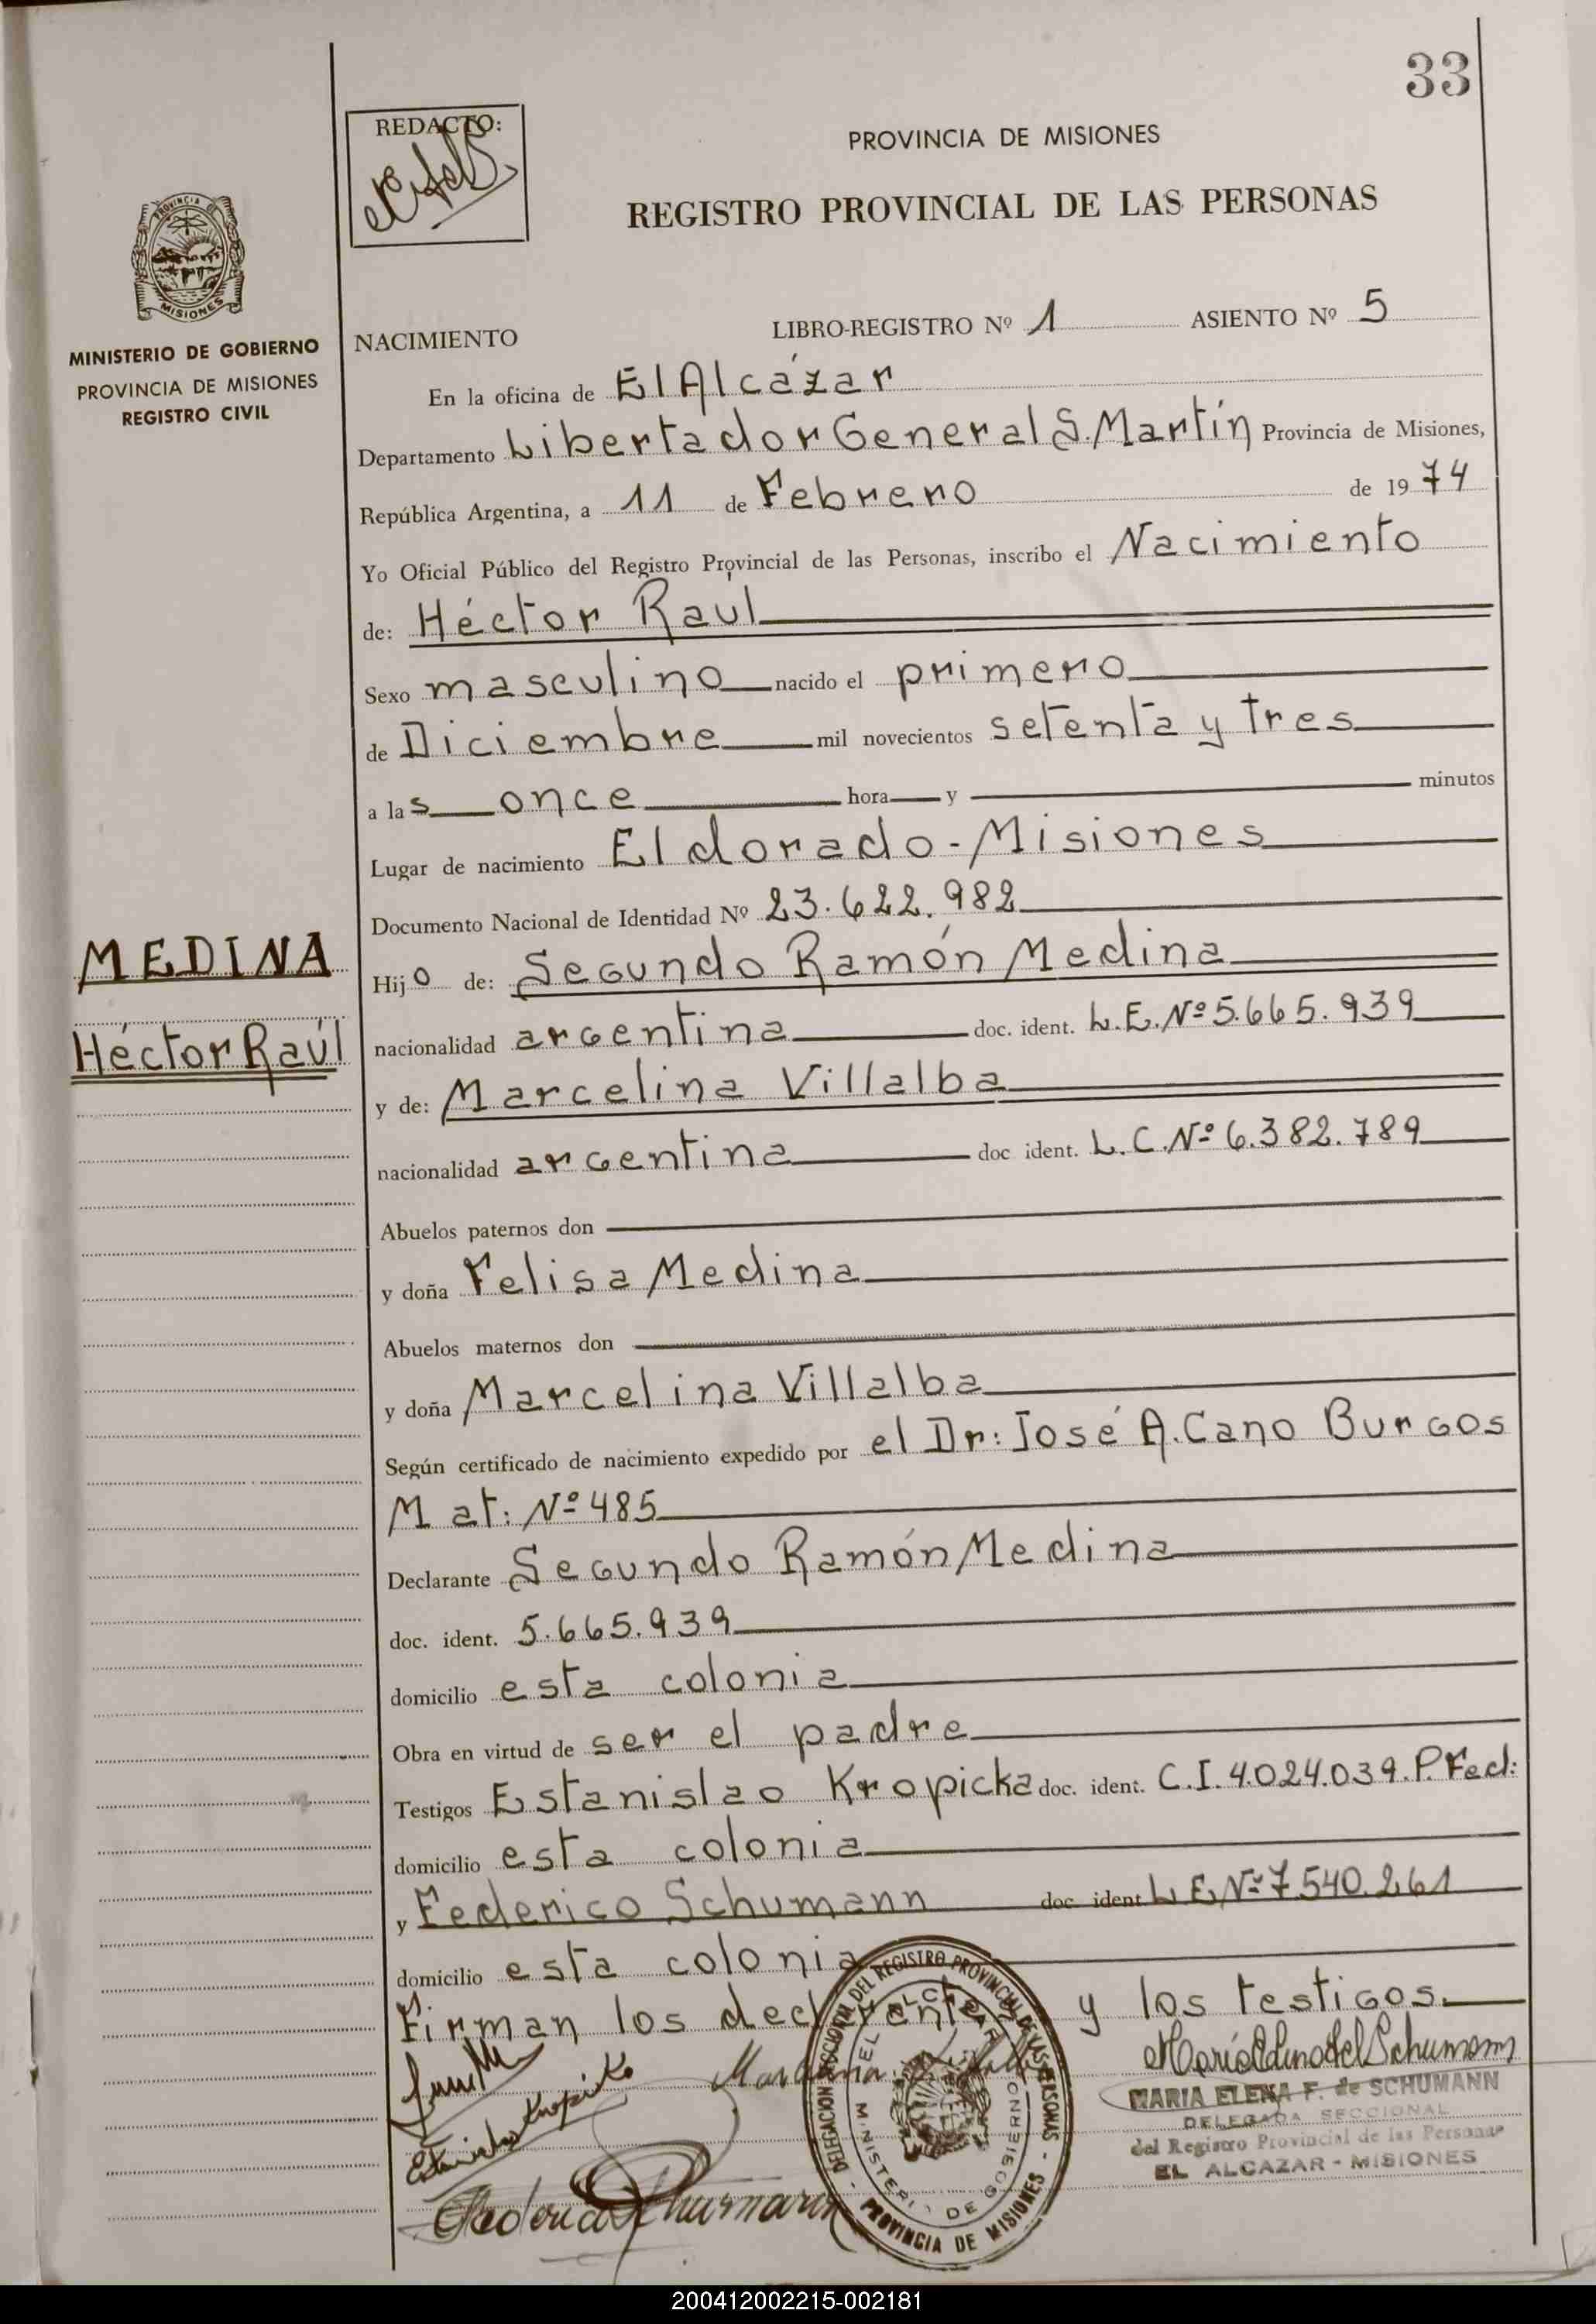 33
REDACTO:
PROVINCIA DE MISIONES
REGISTRO PROVINCIAL DE LAS PERSONAS
PROVINCIA DE
MISIONES
MINISTERIO DE GOBIERNO
PROVINCIA DE MISIONES
REGISTRO CIVIL
NACIMIENTO LIBRO-REGISTRO Nº 1 ASIENTO Nº 5
En la oficina de El Alcázar
Departamento Libertador General S. Martín Provincia de Misiones,
República Argentina, a 11 de Febrero de 1974
Yo Oficial Público del Registro Provincial de las Personas, inscribo el Nacimiento
de: Héctor Raul
Sexo masculino nacido el primero
de Diciembre mil novecientos setenta y tres
a las once hora y minutos
Lugar de nacimiento Eldorado - Misiones
Documento Nacional de Identidad Nº 23.622.982
MEDINA
Héctor Raúl
Hijo de: Segundo Ramón Medina
nacionalidad argentina doc. ident. L.E. Nº 5.665.939
y de: Marcelina Villalba
nacionalidad argentina doc ident. L.C. Nº 6.382.789
Abuelos paternos don
y doña Felisa Medina
Abuelos maternos don
y doña Marcelina Villalba
Según certificado de nacimiento expedido por el Dr: José A. Cano Burgos
Mat: Nº 485
Declarante Segundo Ramón Medina
doc. ident. 5.665.939
domicilio esta colonia
Obra en virtud de ser el padre
Testigos Estanislao Kropicka doc. ident. C.I. 4.024.039. P. Fed:
domicilio esta colonia
y Federico Schumann doc. ident L E Nº 7.540.261
domicilio esta colonia
Firman los y los testigos.
MARIA ELENA F. de SCHUMANN
DELEGADA SECCIONAL
del Registro Provincial de las Personas
EL ALCAZAR - MISIONES
DELEGACION SECCIONAL DEL REGISTRO PROVINCIAL DE LAS PERSONAS
EL ALCAZAR
MINISTERIO DE GOBIERNO
PROVINCIA DE MISIONES
200412002215-002181